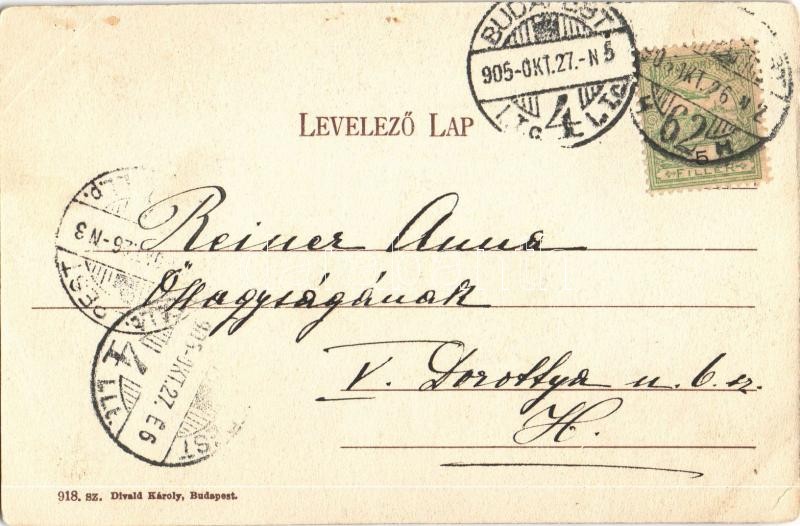 BUDAPEST
905-OKT.27.-N5
4
905 OKT. 26 N2
62
5
FILLÉR
LEVELEZŐ LAP
26-N3
PEST
Reiner Anna
Őnagyságának
V. Dorottya u. 6 sz.
H.
4
905-OKT.27. E6
PEST
918. sz. Divald Károly, Budapest.